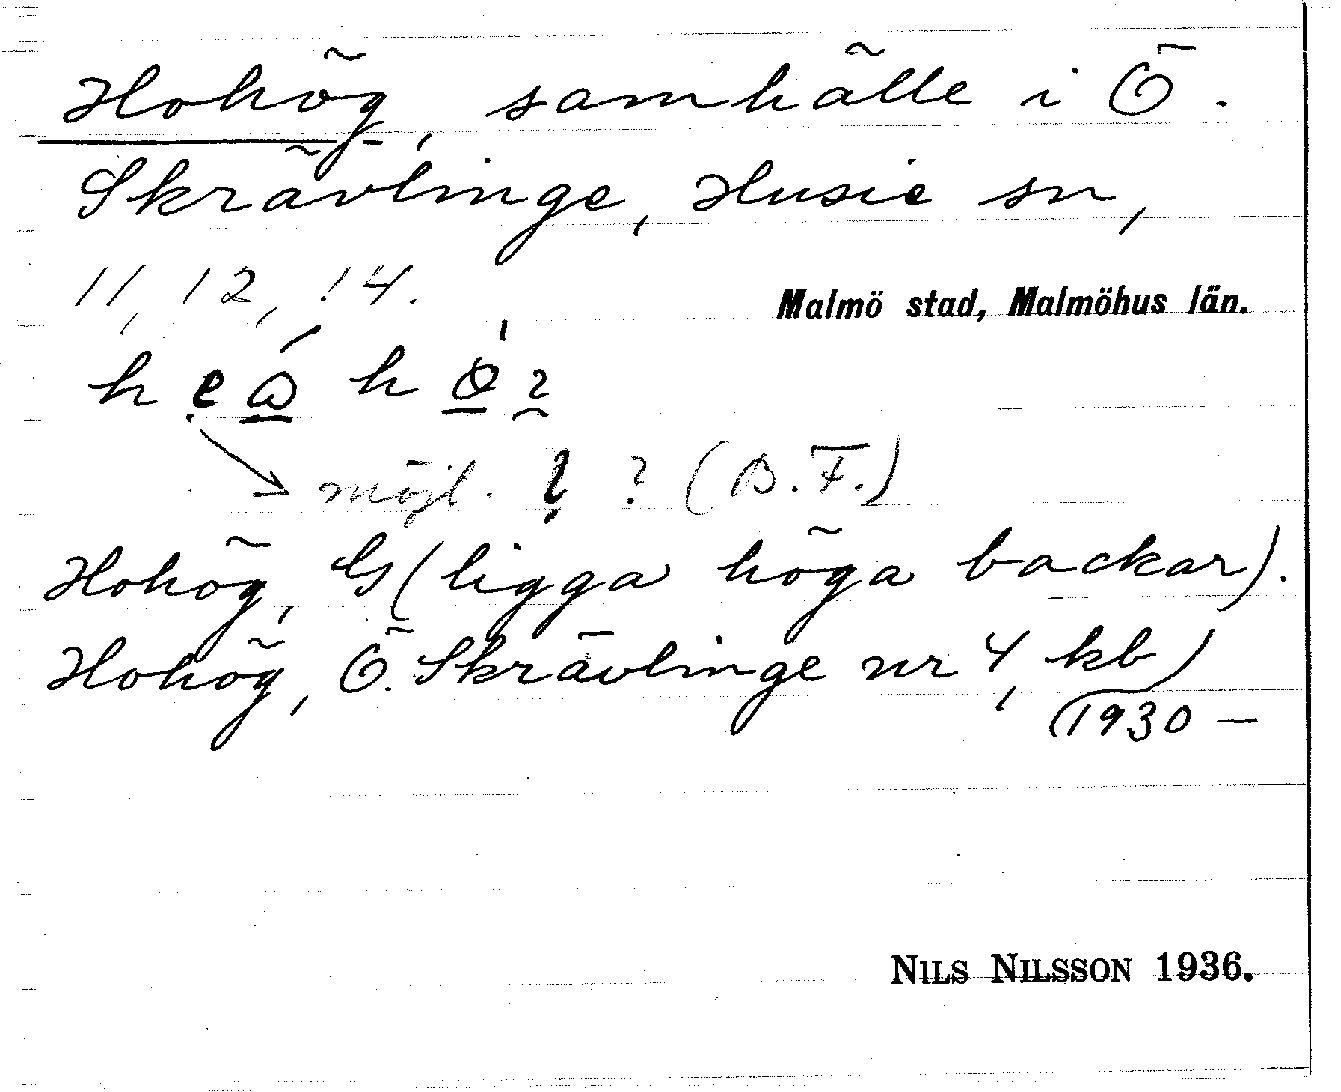 Hohög, samhälle i Ö.
Skrävlinge, Husie sn,
11, 12, 14.
Malmö stad, Malmöhus län.
möjl. ? (B.F.)
Hohög, G (ligga höga backar).
Hohög, Ö. Skrävlinge nr 4, kb
(1930 —
NILS NILSSON 1936.